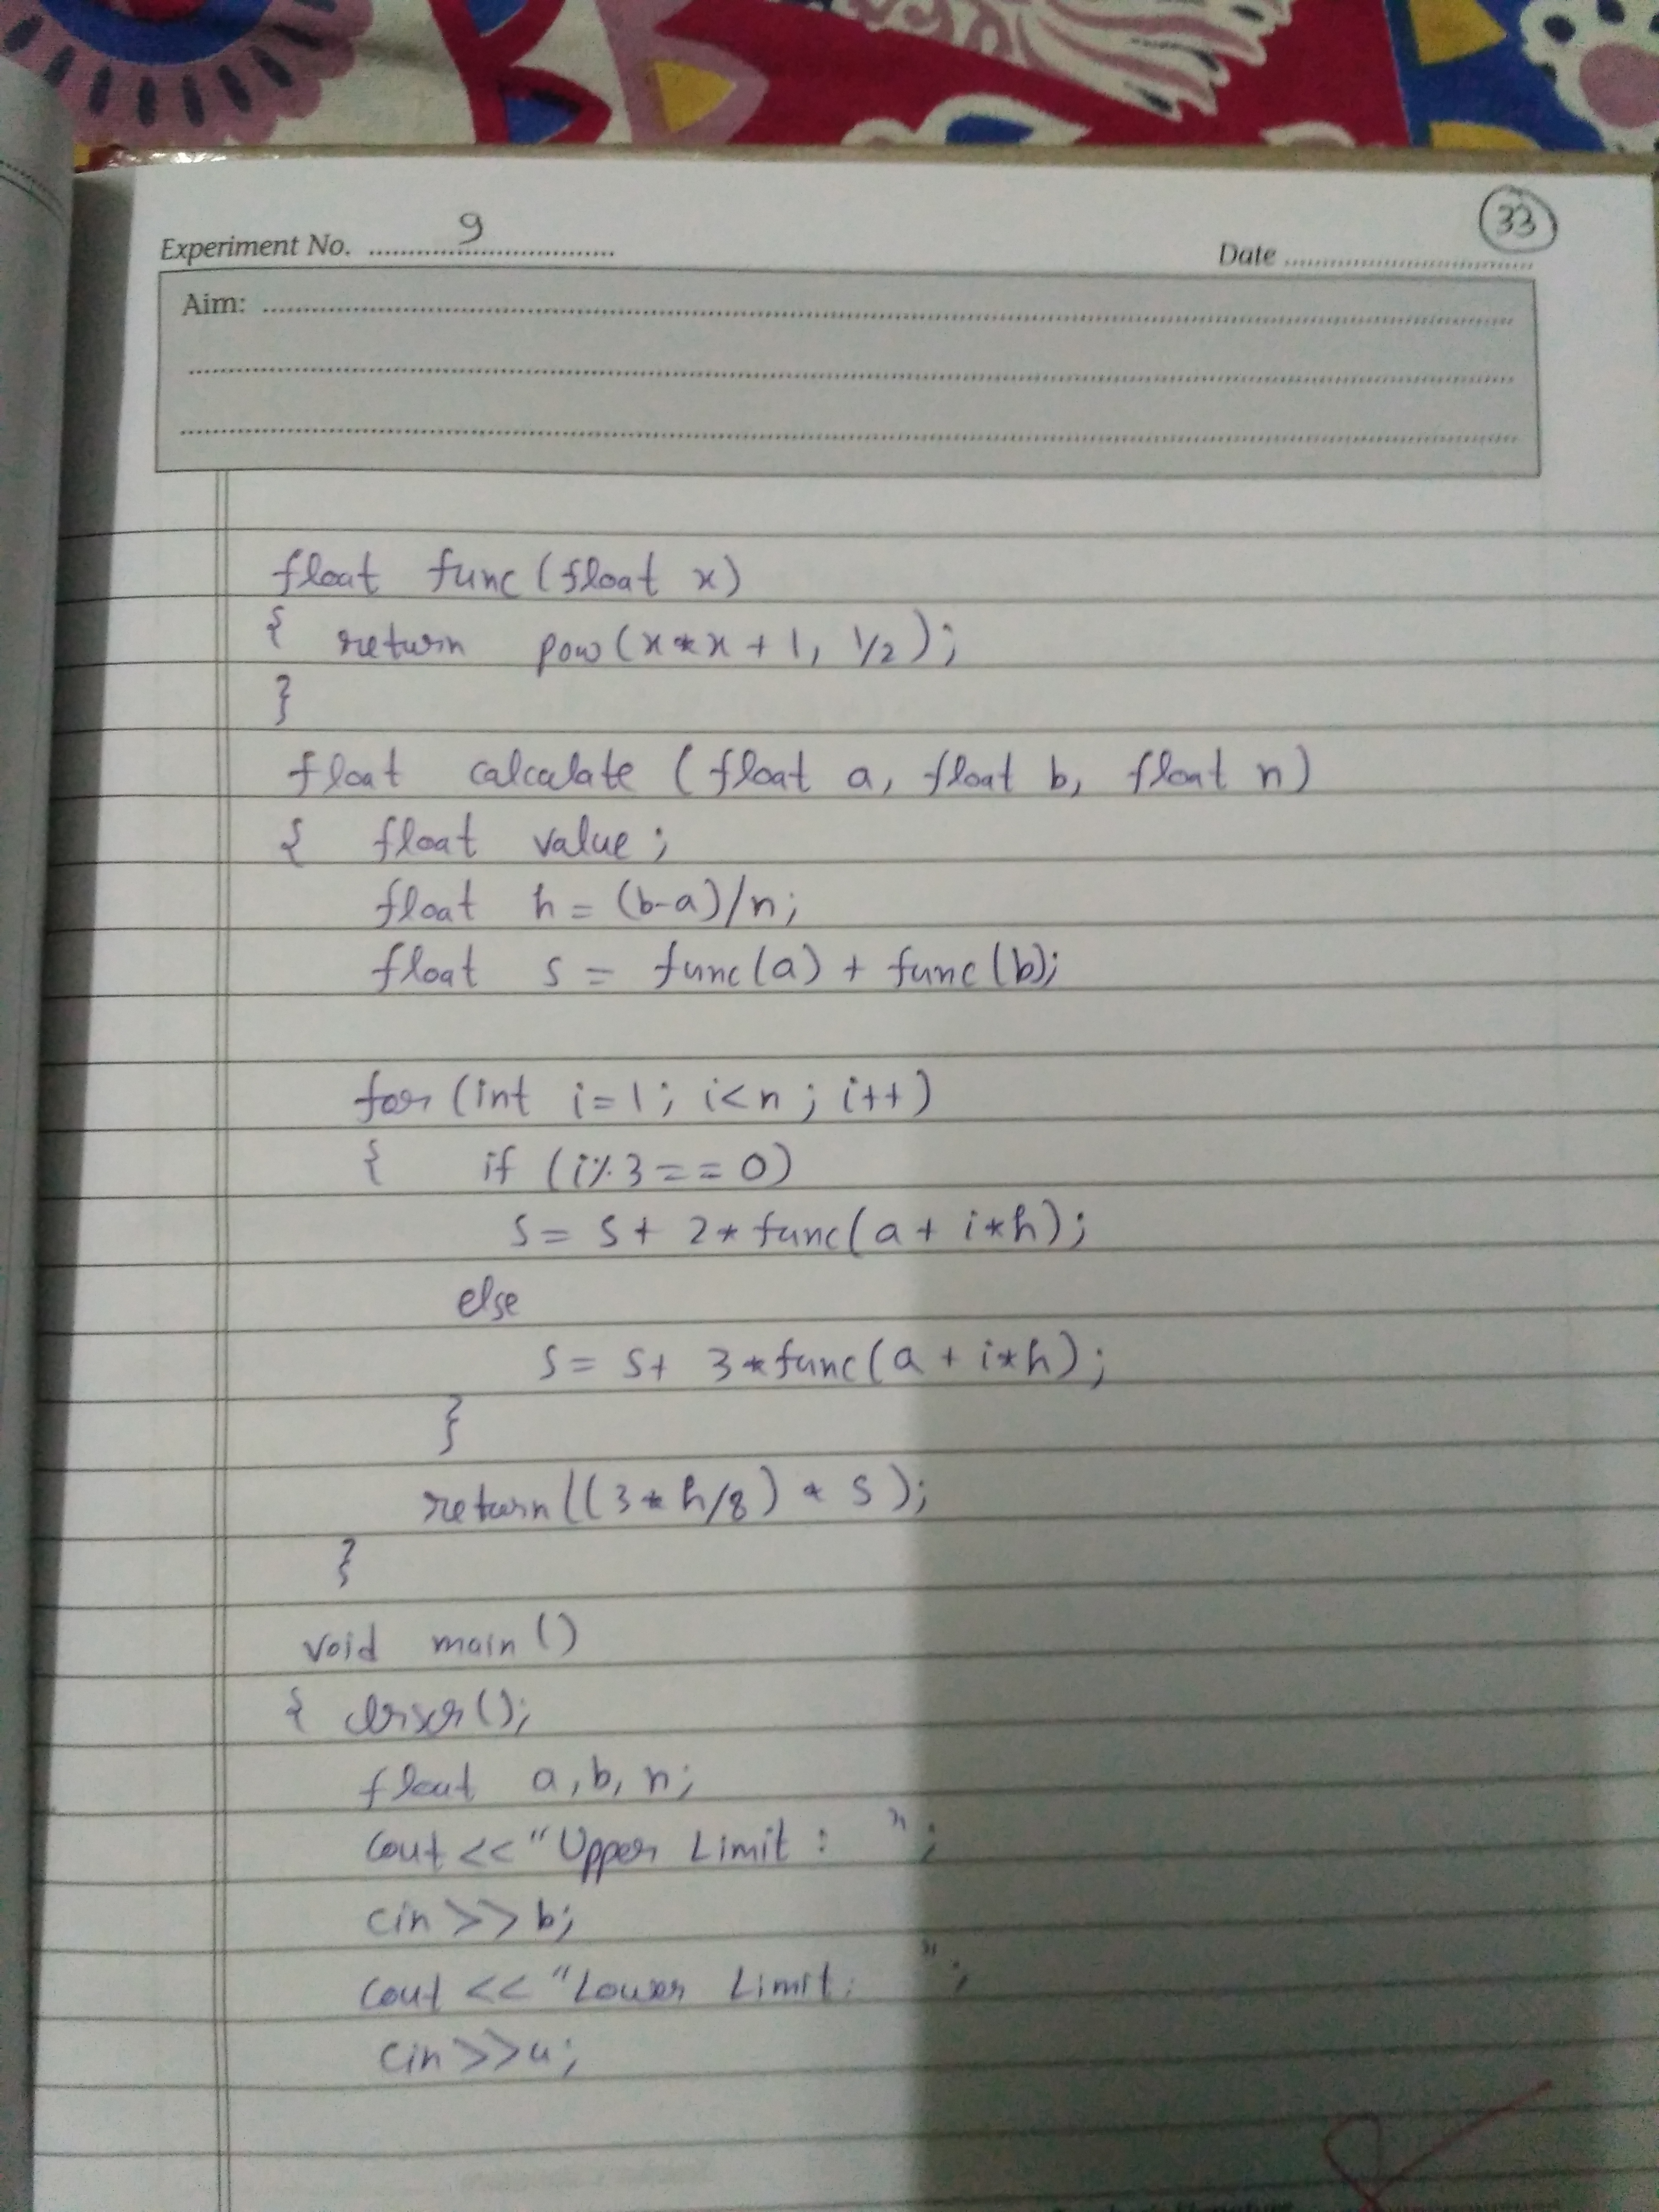 33
Experiment No. 9
Date
Aim:
float func(float x)
{ return pow(x*x+1, 1/2);
}
float calculate (float a, float b, float n)
{ float value;
float h = (b-a)/n;
float s = func(a) + func(b);
for(int i=1; i<n; i++)
{ if (i%3==0)
s = s+ 2*func(a + i*h);
else
s = s+ 3*func(a + i*h);
}
return((3*h/8) * s);
}
void main()
{ clrscr();
float a,b,n;
cout <<"Upper Limit : ";
cin>>b;
cout <<"Lower Limit: ";
cin>>a;